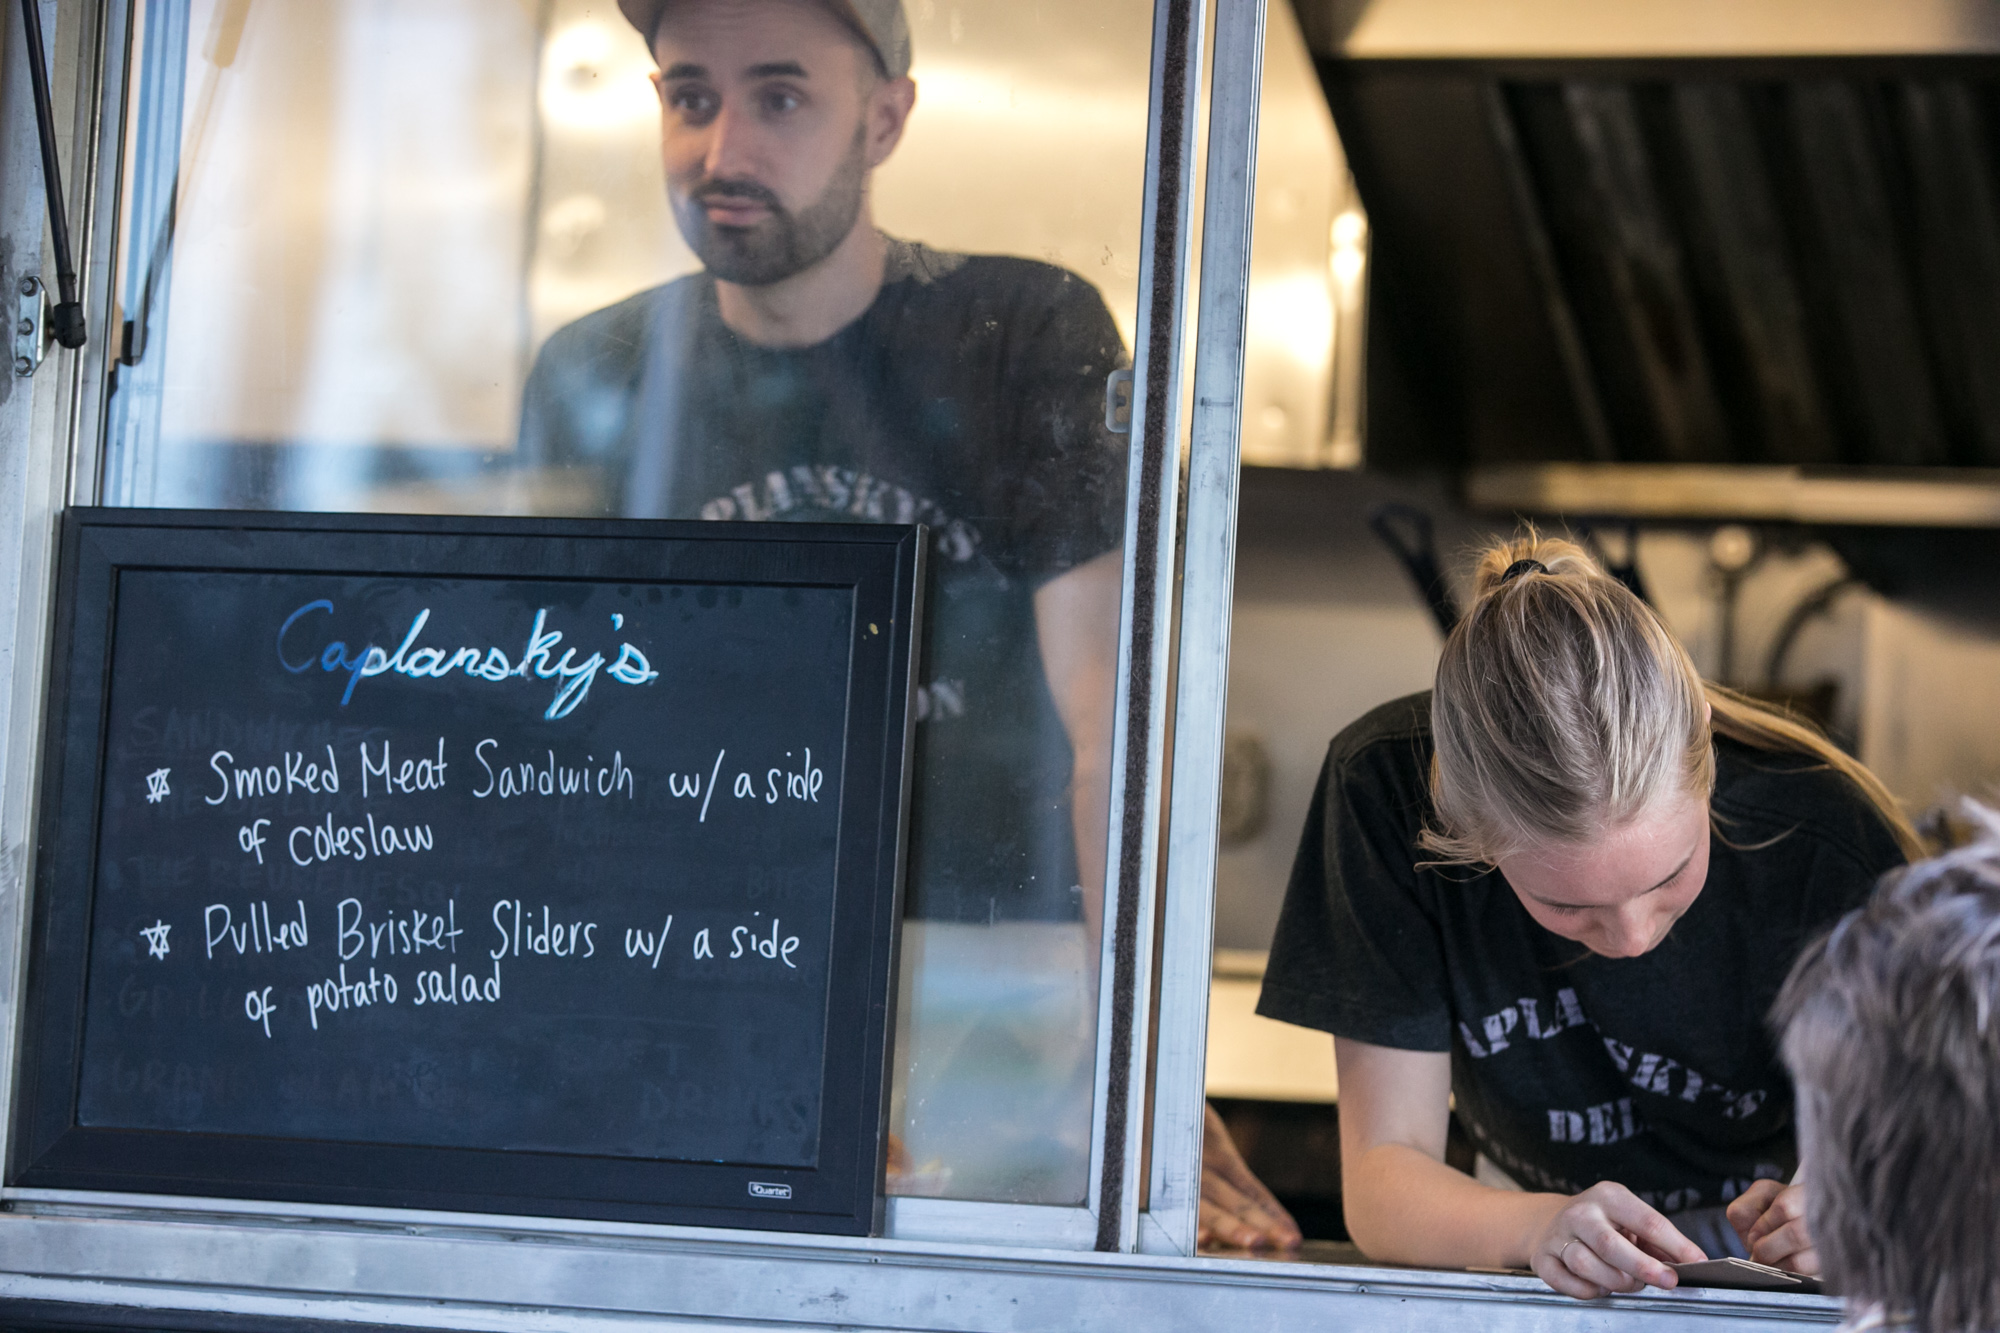 Caplansky's
Smoked Meat Sandwich w/ a side
of coleslaw
Pulled Brisket Sliders w/ a side
of potato salad
Quartet
PLANSKY'S
ON
APLANSKY'S
DEL
SANDWICHES
DRINKS